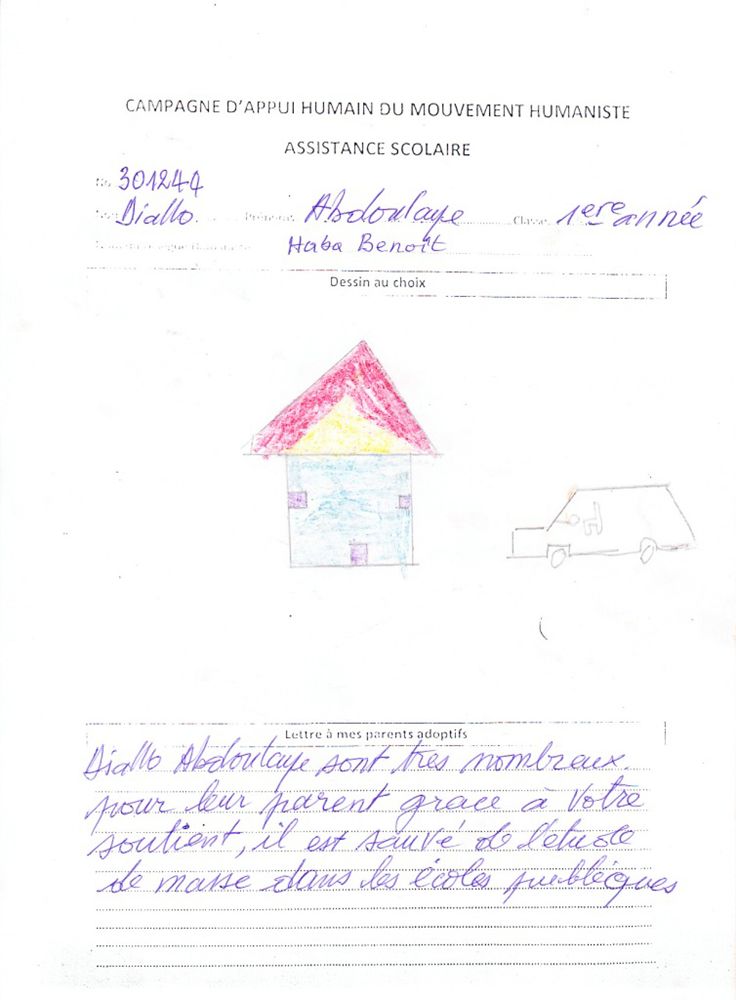 CAMPAGNE D'APPUI HUMAIN DU MOUVEMENT HUMANISTE
ASSISTANCE SCOLAIRE
No 301244
Nom Diallo Prénoms Abdoulaye Classe 1ere année
Haba Benoît
Dessin au choix
Lettre à mes parents adoptifs
Diallo Abdoulaye sont tres nombreux.
pour leur parent grace à Votre
soutient, il est sauvé de l'etude
de masse dans les écoles publiques